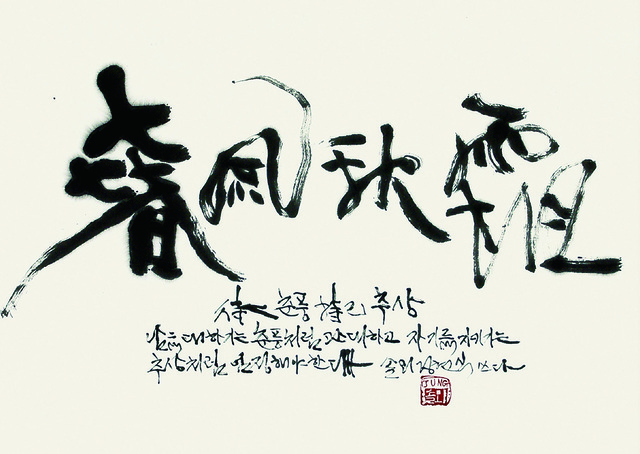 春風秋霜
待人 춘풍 持己 추상
남을 대하기는 춘풍처럼 관대하고 자기를 지키기는
추상처럼 엄정해야한다 솔뫼정현식 쓰다
JUNG